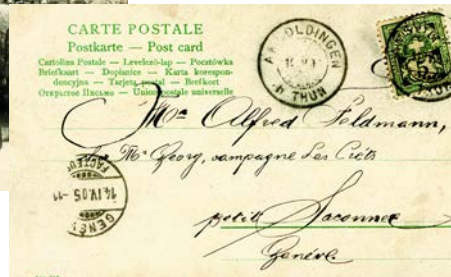 CARTE POSTALE
Postkarte — Post card
Cartolina Postale — Levelező-lap — Pocztówka
Briefkaart — Dopisnice — Karta korespon-
dencyjna — Tarjeta postal — Brefkort
Открытое Письмо — Union postale universelle
AMSOLDINGEN
THUN
Mme Alfred Feldmann,
Mr Georg, campagne Les Crêts
petit Saconnex
Genève
GENÈVE
14.IV.05
FACTEUR